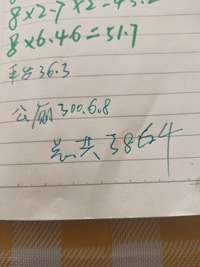 8×2.7×2=43.2
8×6.46=51.7
平台36.3
公厕300.6.8
总共3864